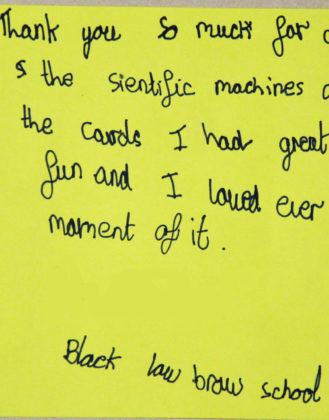 Thank you so much for
s the sientific machines
the cards I had great
fun and I loved ever
moment of it.
Black law brow school